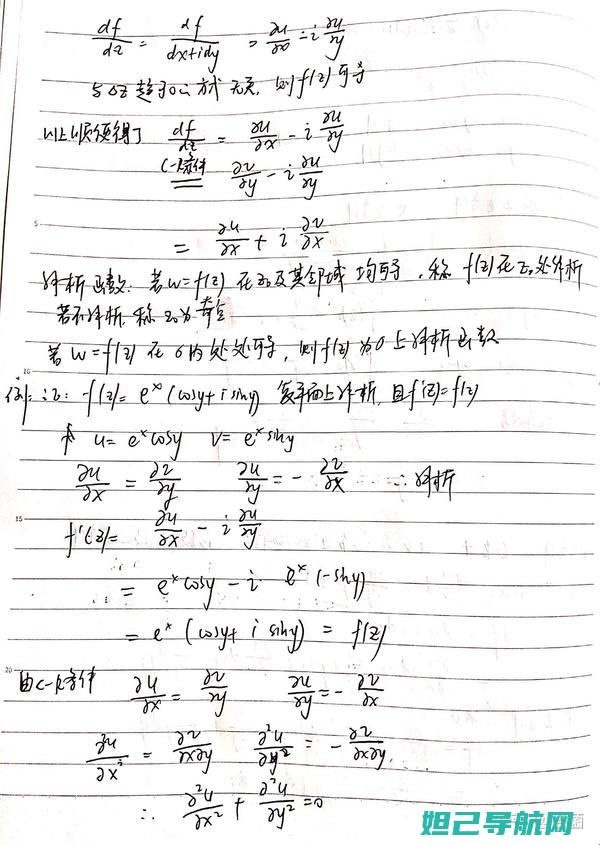 df/dz = df/(dx+idy) = ∂u/∂x - i ∂u/∂y
与Δz趋于0的方式无关, 则f(z)可导
以上顺便得了 df/dz = ∂u/∂x - i ∂u/∂y
C-R条件 ∂v/∂y - i ∂u/∂y
5
= ∂u/∂x + i ∂v/∂x
解析函数: 若w=f(z) 在z₀及其邻域均可导, 称 f(z)在z₀处解析
若不解析, 称z₀为奇点
若 w=f(z) 在σ内处处可导, 则f(z)为σ上解析函数
10
例: 证: f(z)= eˣ(cosy+isiny) 复平面上解析, 且f'(z)=f(z)
u= eˣcosy v= eˣsiny
∂u/∂x = ∂v/∂y ∂u/∂y = - ∂v/∂x ∴解析
15
f'(z)= ∂u/∂x - i ∂u/∂y
= eˣcosy - i eˣ(-siny)
= eˣ(cosy+ i siny) = f(z)
20
由C-R条件 ∂u/∂x = ∂v/∂y ∂u/∂y = - ∂v/∂x
∂²u/∂x² = ∂²v/∂x∂y ∂²u/∂y² = - ∂²v/∂x∂y
∴ ∂²u/∂x² + ∂²u/∂y² =0
妲己导航网